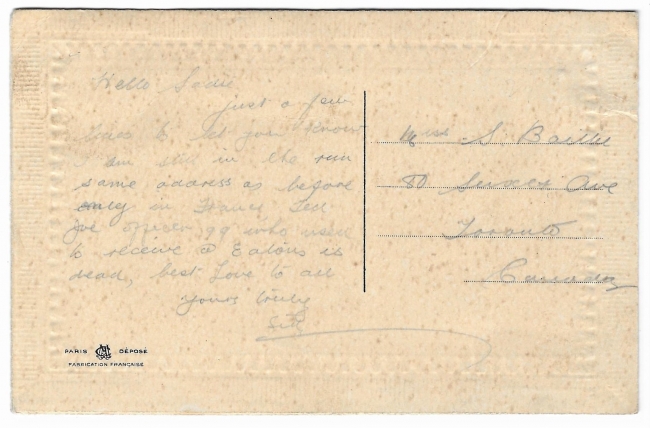 Hello Sadie
just a few
lines to let you know
I am still in the run
same address as before
only in France Ted
Joe 99 who used
to receive @ Eatons is
dead, best Love to all
yours truly
Miss S Baillie
80 Sussex Ave
Toronto
Canada
PARIS DÉPOSÉ
FABRICATION FRANÇAISE